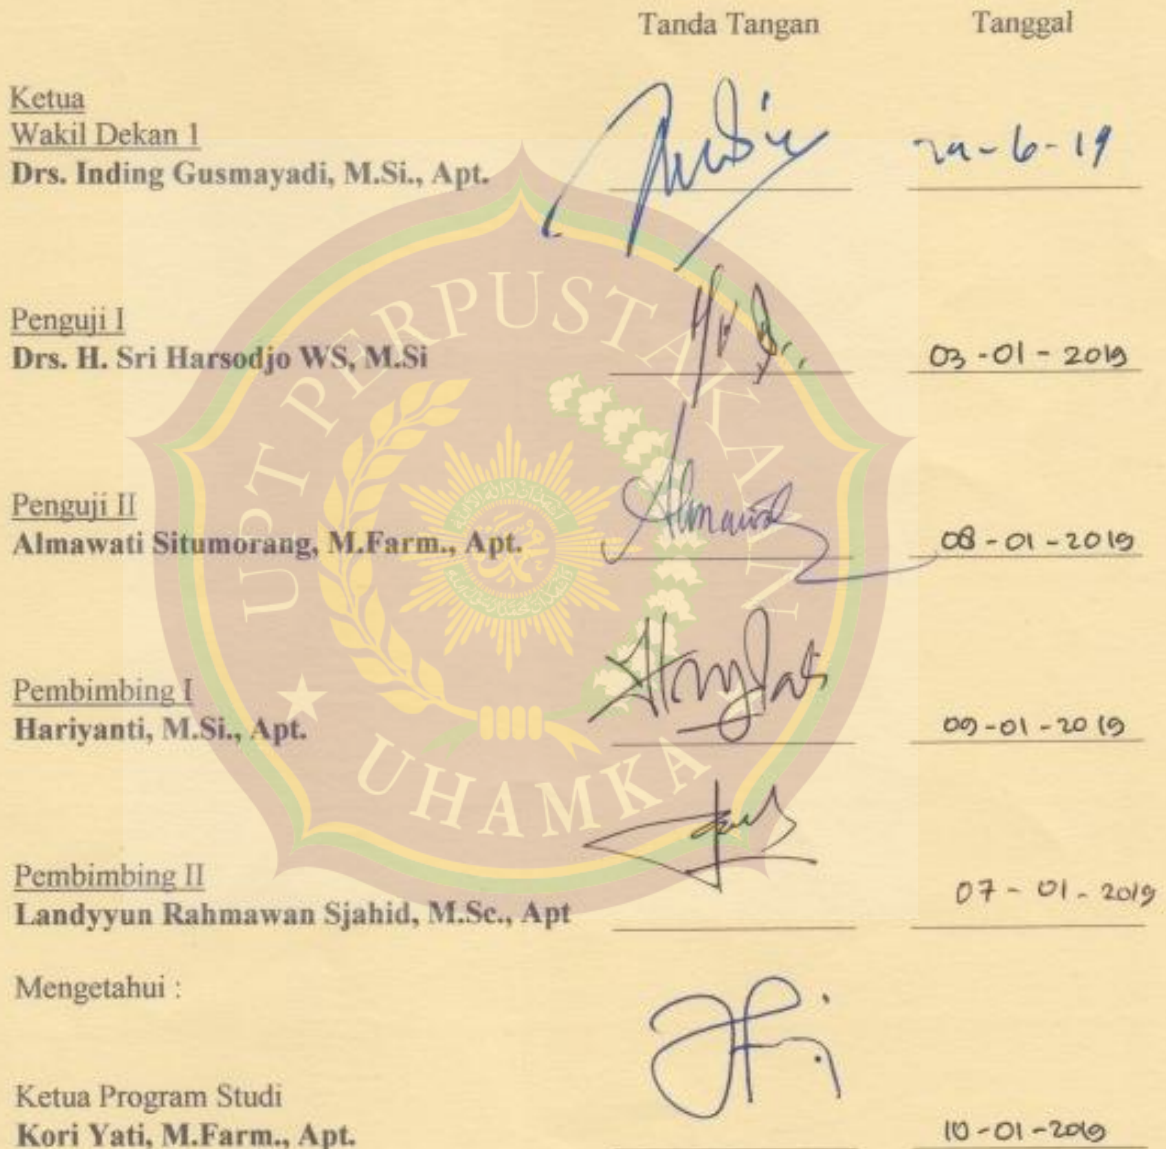 Tanda Tangan Tanggal
Ketua
Wakil Dekan 1
Drs. Inding Gusmayadi, M.Si., Apt. -6-19
Penguji I
Drs. H. Sri Harsodjo WS, M.Si 03-01-2019
Penguji II
Almawati Situmorang, M.Farm., Apt. 08-01-2019
Pembimbing I
Hariyanti, M.Si., Apt. 09-01-2019
Pembimbing II
Landyyun Rahmawan Sjahid, M.Sc., Apt 07-01-2019
Mengetahui :
Ketua Program Studi
Kori Yati, M.Farm., Apt. 10-01-2019
UPT PERPUSTAKAAN
UHAMKA